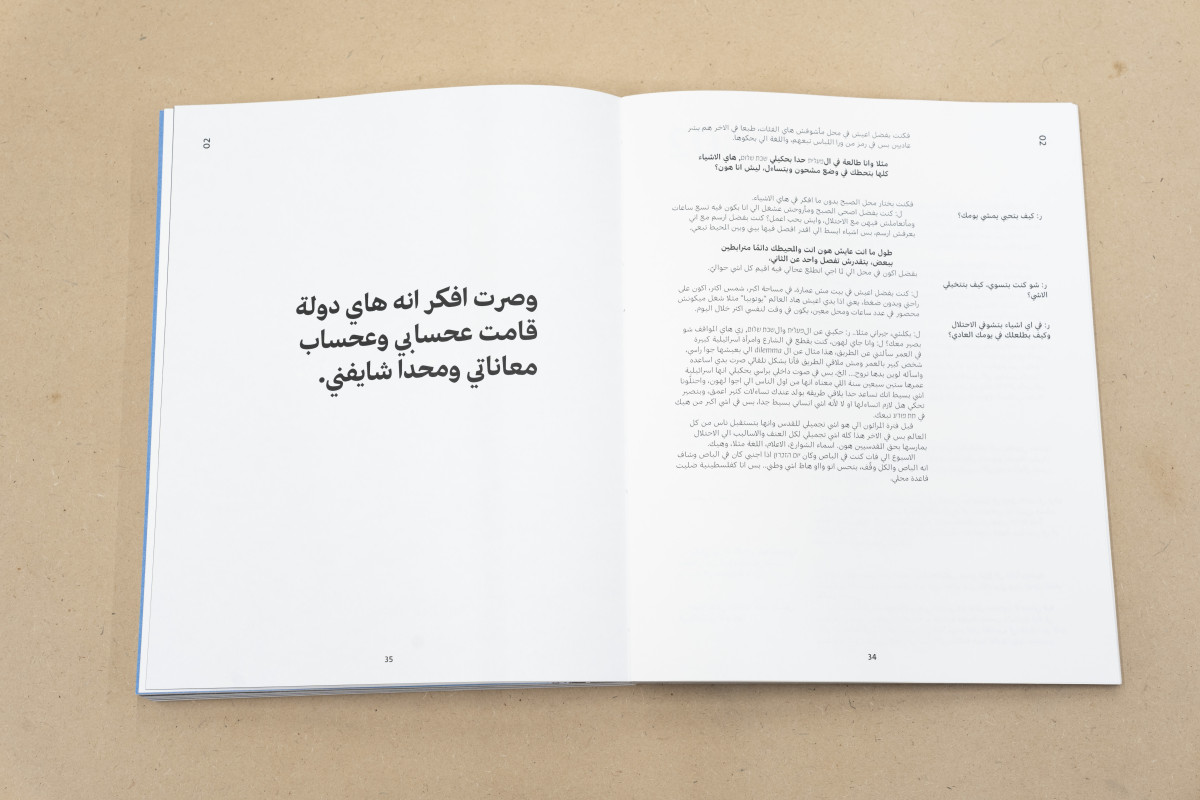 02
فكنت بفضل اعيش في محل مأشوفش هاي الفئات، طبعا في الاخر هم بشر
عاديين بس في رمز من ورا اللباس تبعهم، واللغة الي بحكوها.
مثلا وانا طالعة في الמעלית حدا بحكيلي שבת שלום, هاي الاشياء
كلها بتحطك في وضع مشحون وبتساءل، ليش انا هون؟
فكنت بختار محل الصبح بدون ما افكر في هاي الاشياء.
ر: كيف بتحبي يمشي يومك؟
ل: كنت بفضل اصحى الصبح ومأروحش عشغل الي انا بكون فيه تسع ساعات
ومأتعاملش فيهن مع الاحتلال، وايش بحب اعمل؟ كنت بفضل ارسم مع اني
بعرفش ارسم، بس اشياء ابسط الي اقدر افصل فيها بيني وبين المحيط تبعي.
طول ما انت عايش هون انت والمحيطك دائمًا مترابطين
ببعض، بتقدرش تفصل واحد عن الثاني،
بفضل اكون في محل الي لما اجي انطلع عحالي فيه اقيم كل اشي حواليّ.
ر: شو كنت بتسوي، كيف بتتخيلي
الاشي؟
ل: كنت بفضل اعيش في بيت مش عمارة، في مساحة اكبر، شمس اكثر، اكون على
راحتي وبدون ضغط، يعني اذا بدي اعيش هاد العالم "يوتوبيا" مثلا شغل ميكونش
محصور في عدد ساعات ومحل معين، يكون في وقت لنفسي اكثر خلال اليوم.
ر: في اي اشياء بتشوفي الاحتلال
وكيف بطلعلك في يومك العادي؟
ل: بكلشي، جيراني مثلا.. ر: حكيتي عن الמעלית والשבת שלום, زي هاي المواقف شو
بصير معاك؟ ل: وانا جاي لهون، كنت بقطع في الشارع وامرأة اسرائيلية كبيرة
في العمر سألتني عن الطريق، هذا مثال عن ال dilemma الي بعيشها جوا راسي،
شخص كبير بالعمر ومش ملاقي الطريق فأنا بشكل تلقائي صرت بدي اساعده
واسأله لوين بدها تروح... الخ، بس في صوت داخلي براسي بحكيلي انها اسرائيلية
عمرها ستين سبعين سنة اللي معناه انها من اول الناس الي اجوا لهون، واحتلّونا
اشي بسيط انك تساعد حدا يلاقي طريقه يولد عندك تساءلات كثير اعمق، وبتصير
تحكي هل لازم اتساءلها او لا لأنه اشي انساني بسيط جدا، بس في اشي اكبر من هيك
في תת מודע تبعك.
قبل فترة المراثون الي هو اشي تجميلي للقدس وانها بتستقبل ناس من كل
العالم بس في الاخر هذا كله اشي تجميلي لكل العنف والاساليب الي الاحتلال
بمارسها بحق القدسيين هون. اسماء الشوارع، الاعلام، اللغة مثلا، وهيك.
الاسبوع الي فات كنت في الباص وكان יום הזכרון اذا اجنبي كان في الباص وشاف
انه الباص والكل وقّف، بتحس انو واو هاظ اشي وطني.. بس انا كفلسطينية ضليت
قاعدة محلي.
34
02
وصرت افكر انه هاي دولة
قامت عحسابي وعحساب
معاناتي ومحدا شايفني.
35